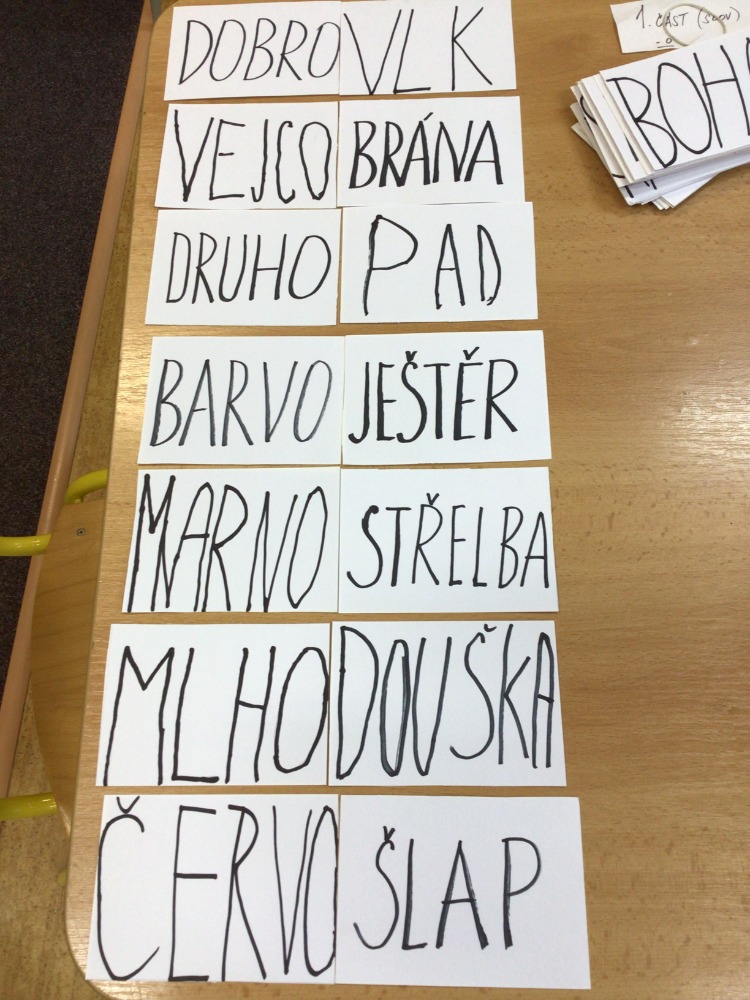 DOBRO VLK
1. ČÁST (SLOV)
BOH
VEJCO BRÁNA
DRUHO PAD
BARVO JEŠTĚR
MARNO STŘELBA
MLHO DOUŠKA
ČERVO ŠLAP